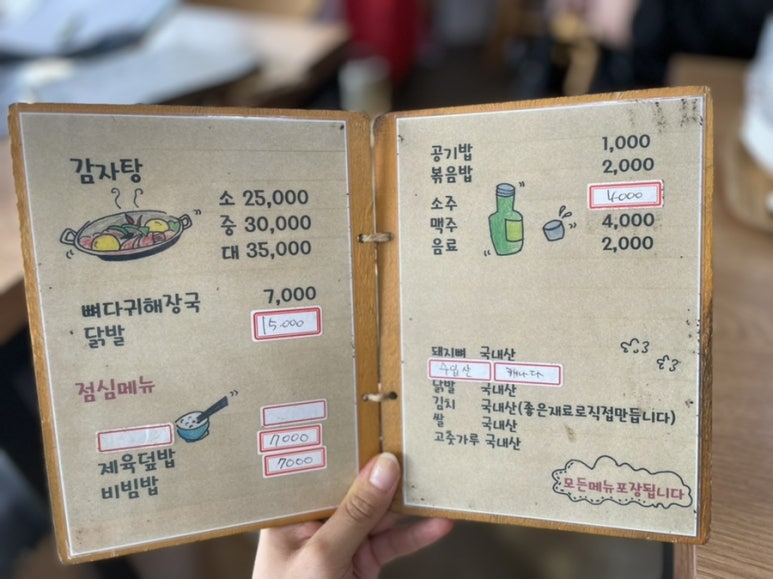 감자탕
소 25,000
중 30,000
대 35,000
뼈다귀해장국 7,000
닭발 15,000
점심메뉴
제육덮밥 7000
비빔밥 7000
공기밥 1,000
볶음밥 2,000
소주 4000
맥주 4,000
음료 2,000
돼지뼈 국내산
수입산 캐나다
닭발 국내산
김치 국내산(좋은재료로직접만듭니다)
쌀 국내산
고춧가루 국내산
모든메뉴포장됩니다